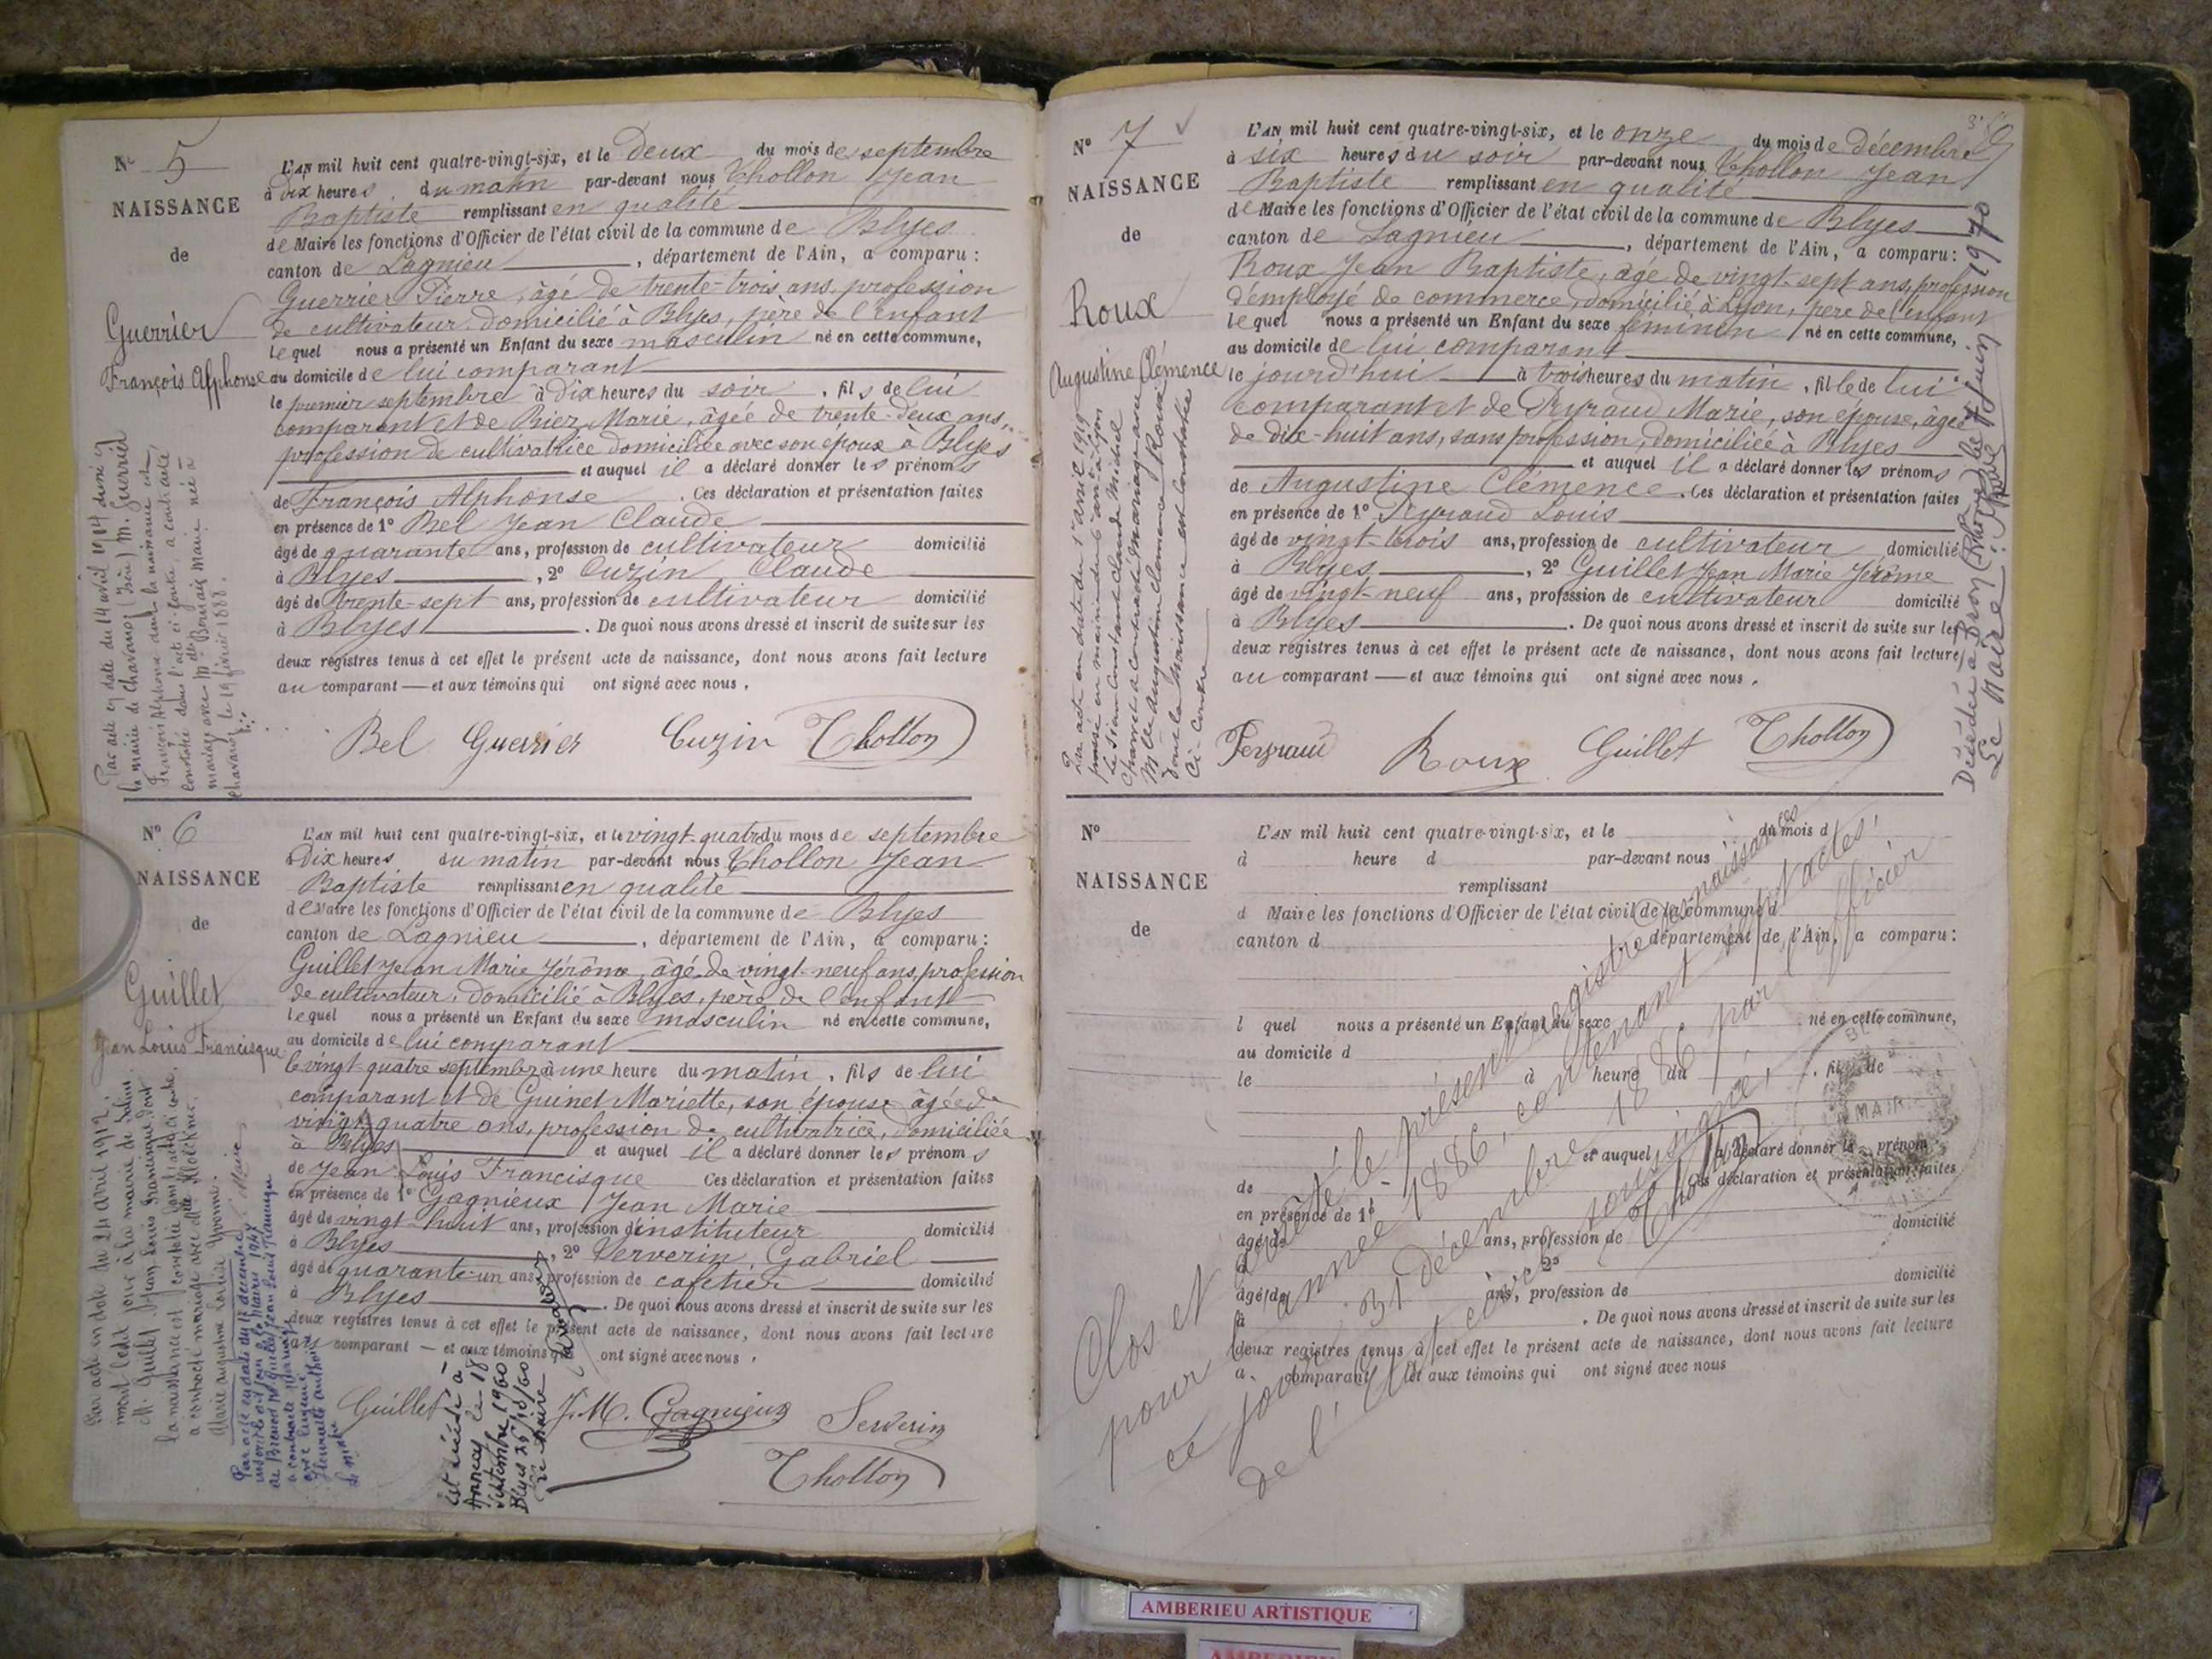 N° 5
NAISSANCE
de
Guerrier
François Alphonse
L'AN mil huit cent quatre-vingt-six, et le deux du mois de septembre
à dix heures du matin par-devant nous Thollon Jean
Baptiste remplissant en qualité
de Maire les fonctions d'Officier de l'état civil de la commune de Blyes
canton de Lagnieu, département de l'Ain, a comparu:
Guerrier Pierre, âgé de trente-trois ans, profession
de cultivateur, domicilié à Blyes, père de l'enfant
lequel nous a présenté un Enfant du sexe masculin né en cette commune,
au domicile de lui comparant
le premier septembre à dix heures du soir, fils de lui
comparant et de Marie, âgée de trente-deux ans,
profession de cultivatrice domiciliée avec son époux à Blyes
et auquel il a déclaré donner les prénoms
de François Alphonse. Ces déclaration et présentation faites
en présence de 1° Bel Jean Claude
âgé de quarante ans, profession de cultivateur domicilié
à Blyes, 2° Cuzin Claude
âgé de trente-sept ans, profession de cultivateur domicilié
à Blyes. De quoi nous avons dressé et inscrit de suite sur les
deux registres tenus à cet effet le présent acte de naissance, dont nous avons fait lecture
au comparant — et aux témoins qui ont signé avec nous.
Bel Guerrier Cuzin Thollon
Par acte en date du 14 avril 1914
la mairie de Chavanoz (Isère) M. Guerrier
François Alphonse dont la naissance est
constatée dans l'acte ci-contre, a contracté
mariage avec Marie née à
Chavanoz le 19 février 1888.
N° 6
NAISSANCE
de
Guillet
Jean Louis Francisque
L'AN mil huit cent quatre-vingt-six, et le vingt-quatre du mois de septembre
à dix heures du matin par-devant nous Thollon Jean
Baptiste remplissant en qualité
de Maire les fonctions d'Officier de l'état civil de la commune de Blyes
canton de Lagnieu, département de l'Ain, a comparu:
Guillet Jean Marie Jérôme, âgé de vingt-neuf ans, profession
de cultivateur, domicilié à Blyes, père de l'enfant
lequel nous a présenté un Enfant du sexe masculin né en cette commune,
au domicile de lui comparant
le vingt-quatre septembre à une heure du matin, fils de lui
comparant et de Guinet Mariette, son épouse âgée de
vingt-quatre ans, profession de cultivatrice, domiciliée
à Blyes et auquel il a déclaré donner les prénoms
de Jean Louis Francisque Ces déclaration et présentation faites
en présence de 1° Gagnieux Jean Marie
âgé de vingt-huit ans, profession d'instituteur domicilié
à Blyes, 2° Serverin Gabriel
âgé de quarante-un ans, profession de cafetier domicilié
à Blyes. De quoi nous avons dressé et inscrit de suite sur les
deux registres tenus à cet effet le présent acte de naissance, dont nous avons fait lecture
au comparant — et aux témoins qui ont signé avec nous.
Guillet J.M. Gagnieux Serverin
Thollon
Par acte en date du 24 avril 1912,
M. Guillet Jean Louis Francisque dont
la naissance est constatée dans l'acte ci-contre,
a contracté mariage avec Melle
Marie Augustine Louise Yvonne.
Est décédé à
Annecy le 18
Septembre 1960
Blyes
Le Maire
N° 7
NAISSANCE
de
Roux
Augustine Clémence
L'AN mil huit cent quatre-vingt-six, et le onze du mois de décembre
à six heures du soir par-devant nous Thollon Jean
Baptiste remplissant en qualité
de Maire les fonctions d'Officier de l'état civil de la commune de Blyes
canton de Lagnieu, département de l'Ain, a comparu:
Roux Jean Baptiste, âgé de vingt-sept ans, profession
d'employé de commerce, domicilié à Lyon, père de l'enfant
lequel nous a présenté un Enfant du sexe féminin né en cette commune,
au domicile de lui comparant
le jourd'hui à trois heures du matin, fille de lui
comparant et de Peyraud Marie, son épouse, âgée
de dix-huit ans, sans profession, domiciliée à Blyes
et auquel il a déclaré donner les prénoms
de Augustine Clémence. Ces déclaration et présentation faites
en présence de 1° Peyraud Louis
âgé de vingt-trois ans, profession de cultivateur domicilié
à Blyes, 2° Guillet Jean Marie Jérôme
âgé de vingt-neuf ans, profession de cultivateur domicilié
à Blyes. De quoi nous avons dressé et inscrit de suite sur les
deux registres tenus à cet effet le présent acte de naissance, dont nous avons fait lecture
au comparant — et aux témoins qui ont signé avec nous.
Peyraud Roux Guillet Thollon
Par acte en date du 1er avril 1919
Melle Augustine Clémence Roux
dont la naissance est constatée
ci-contre
Décédée à Bron (Rhône) le 7 juin 1970
Le Maire:
N°
NAISSANCE
de
L'AN mil huit cent quatre-vingt-six, et le du mois d
à heure d par-devant nous
remplissant
d Maire les fonctions d'Officier de l'état civil de la commune d
canton d département de l'Ain, a comparu:
l quel nous a présenté un Enfant du sexe né en cette commune,
au domicile d
le à heure du , fil de
et auquel a déclaré donner le prénom
de Ces déclaration et présentation faites
en présence de 1°
âgé de ans, profession de domicilié
à 2°
âgé de ans, profession de domicilié
à . De quoi nous avons dressé et inscrit de suite sur les
deux registres tenus à cet effet le présent acte de naissance, dont nous avons fait lecture
a comparant et aux témoins qui ont signé avec nous
Clos et arrêté le présent registre des naissances
pour l'année 1886, contenant sept actes,
ce jour 31 décembre 1886 par l'officier
de l'état civil soussigné,
Thollon
MAIRIE
AIN
AMBERIEU ARTISTIQUE
AMBERIEU